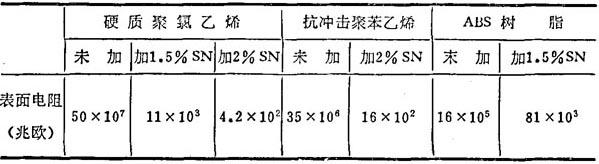 硬质聚氯乙烯 抗冲击聚苯乙烯 ABS树脂
未加 加1.5%SN 加2%SN 未加 加2%SN 未加 加1.5%SN
表面电阻
(兆欧) 50×10⁷ 11×10³ 4.2×10² 35×10⁶ 16×10² 16×10⁵ 81×10³